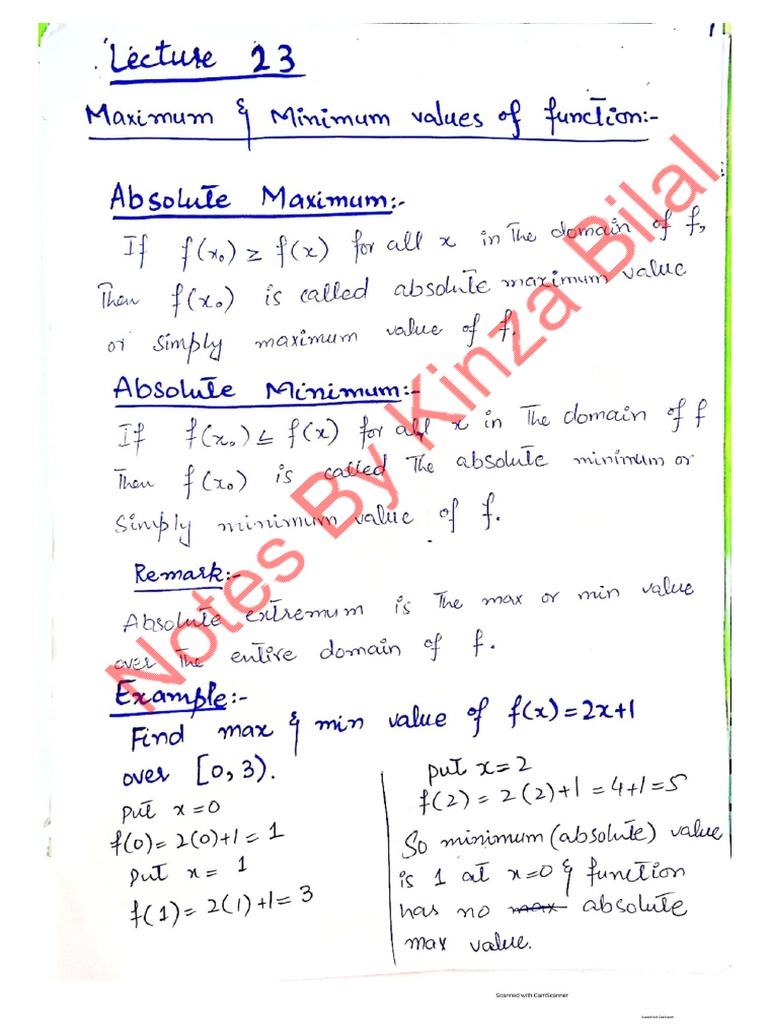 1
Lecture 23
Maximum & Minimum values of function:-
Absolute Maximum:-
If f(x₀) ≥ f(x) for all x in the domain of f,
Then f(x₀) is called absolute maximum value
or simply maximum value of f.
Absolute Minimum:-
If f(x₀) ≤ f(x) for all x in The domain of f
Then f(x₀) is called The absolute minimum or
simply minimum value of f.
Remark:-
Absolute extremum is The max or min value
over The entire domain of f.
Example:-
Find max & min value of f(x)=2x+1
over [0,3).
put x=0
f(0)=2(0)+1=1
put x=1
f(1)=2(1)+1=3
put x=2
f(2)=2(2)+1=4+1=5
So minimum (absolute) value
is 1 at x=0 & function
has no max absolute
max value.
Notes By Kinza Bilal
Scanned with CamScanner
Scanned with CamScanner